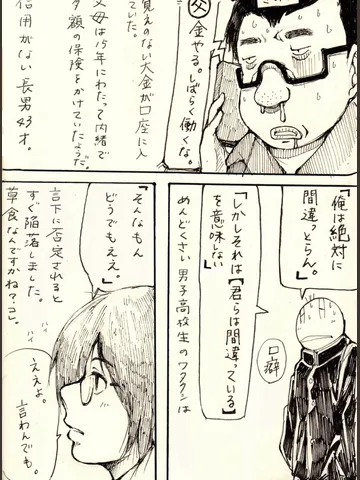 父 金やる。しばらく働くな。
覚えのない大金が口座に入
ていた。
父母は15年にわたって内緒で
額の保険をかけていたようだ。
信用がない 長男43才。
「俺は絶対に
間違っとらん。」
口癖
「しかしそれは【君らは間違っている】
を意味しない」
めんどくさい 男子高校生のワタクシは
「そんなもん
どうでもええ。」
言下に否定されると
すぐ陥落しました。
草食なんすかね?コレ。
ハイ
ハイ
ええよ。
言わんでも。